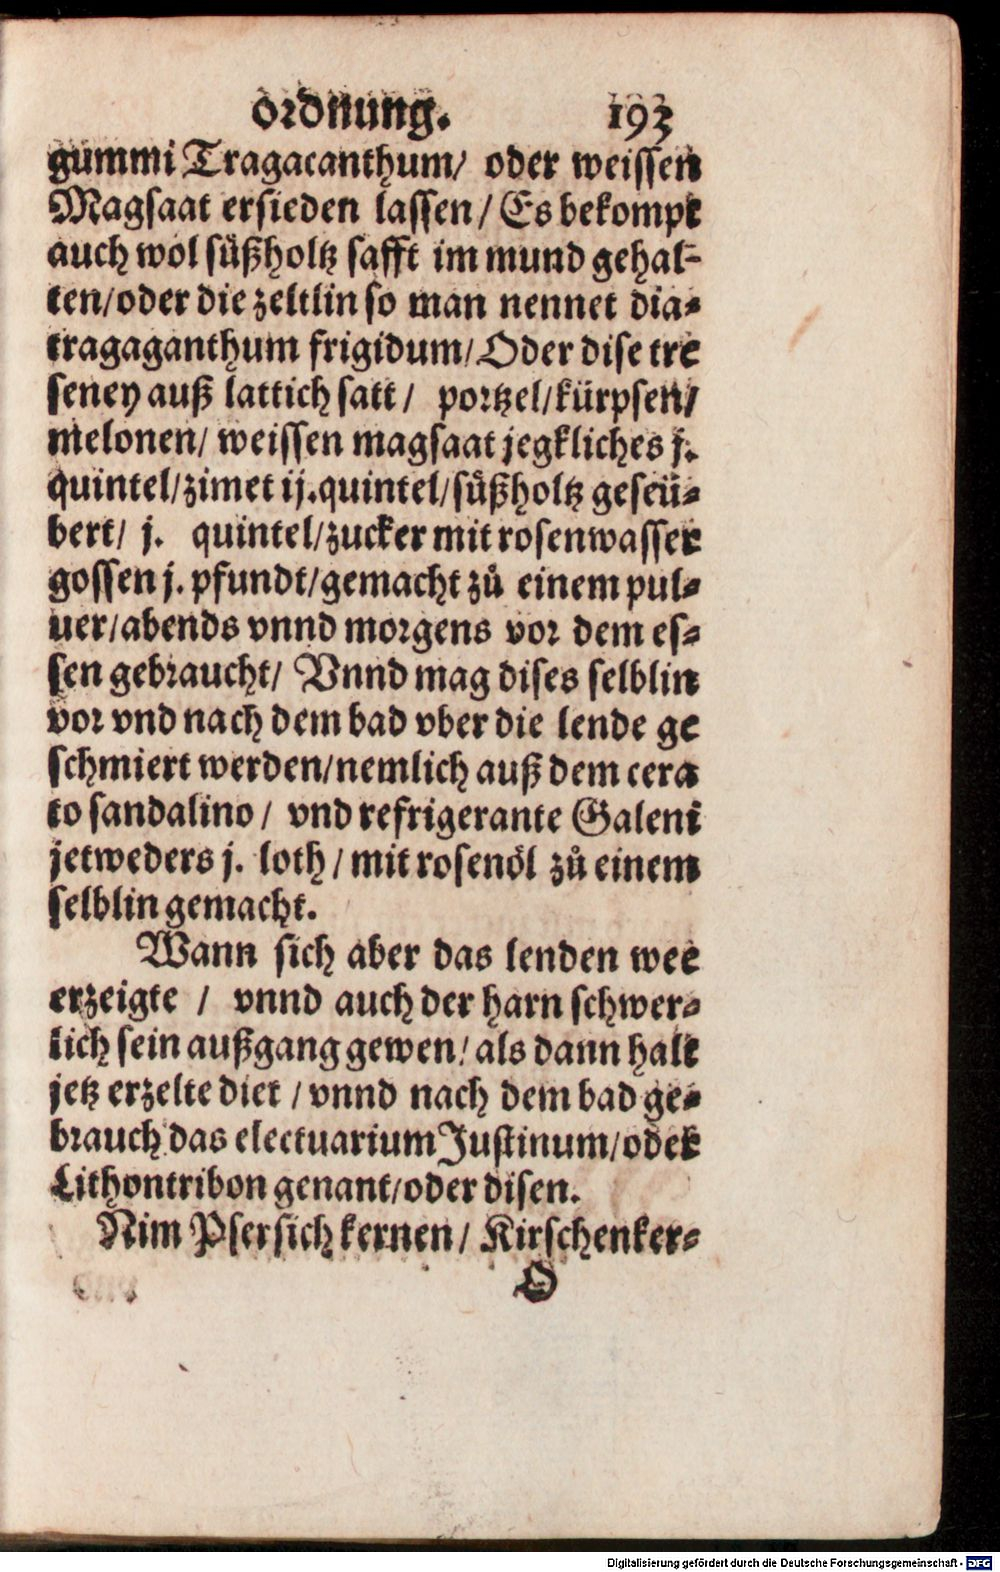 ordnung. 193
gummi Tragacanthum/ oder weissen
Magsaat ersieden lassen/ Es bekompt
auch wol süßholtz safft im mund gehal-
ten/ oder die zeltlin so man nennet dia-
tragaganthum frigidum/ Oder dise tre
seney auß lattich satt/ portzel/ kürpsen/
melonen/ weissen magsaat jegkliches j.
quintel/ zimet ij. quintel/ süßholtz geseü-
bert/ j. quintel/ zucker mit rosenwasser
gossen j. pfundt/ gemacht zů einem pul-
uer/ abends vnnd morgens vor dem es-
sen gebraucht/ Vnnd mag dises selblin
vor vnd nach dem bad vber die lende ge
schmiert werden/ nemlich auß dem cera
to sandalino/ vnd refrigerante Galeni
jetweders j. loth/ mit rosenöl zů einem
selblin gemacht.
Wann sich aber das lenden wee
erzeigte / vnnd auch der harn schwer-
lich sein außgang gewen/ als dann halt
jetz erzelte diet / vnnd nach dem bad ge-
brauch das electuarium Justinum/ oder
Lithontribon genant/ oder disen.
Nim Pfersich kernen/ Kirschenker-
O
Digitalisierung gefördert durch die Deutsche Forschungsgemeinschaft - DFG